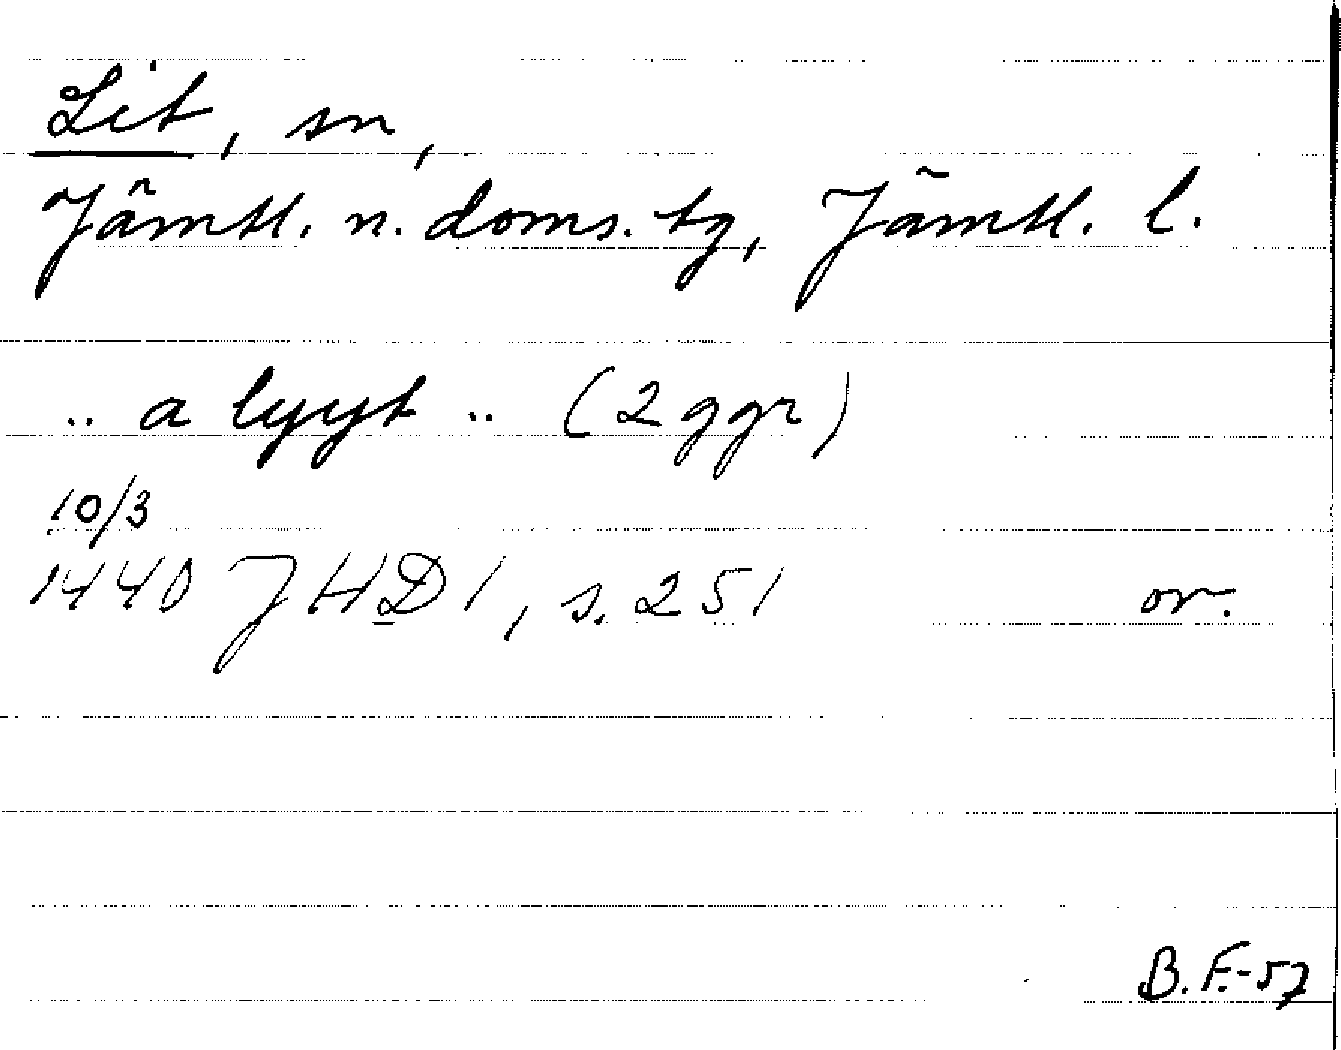 Lit, sn,
Jämtl. n. doms. tg, Jämtl. l.
.. a lyyt .. (2 ggr)
10/3
1440 JHD 1, s. 251 or.
B. F.-57